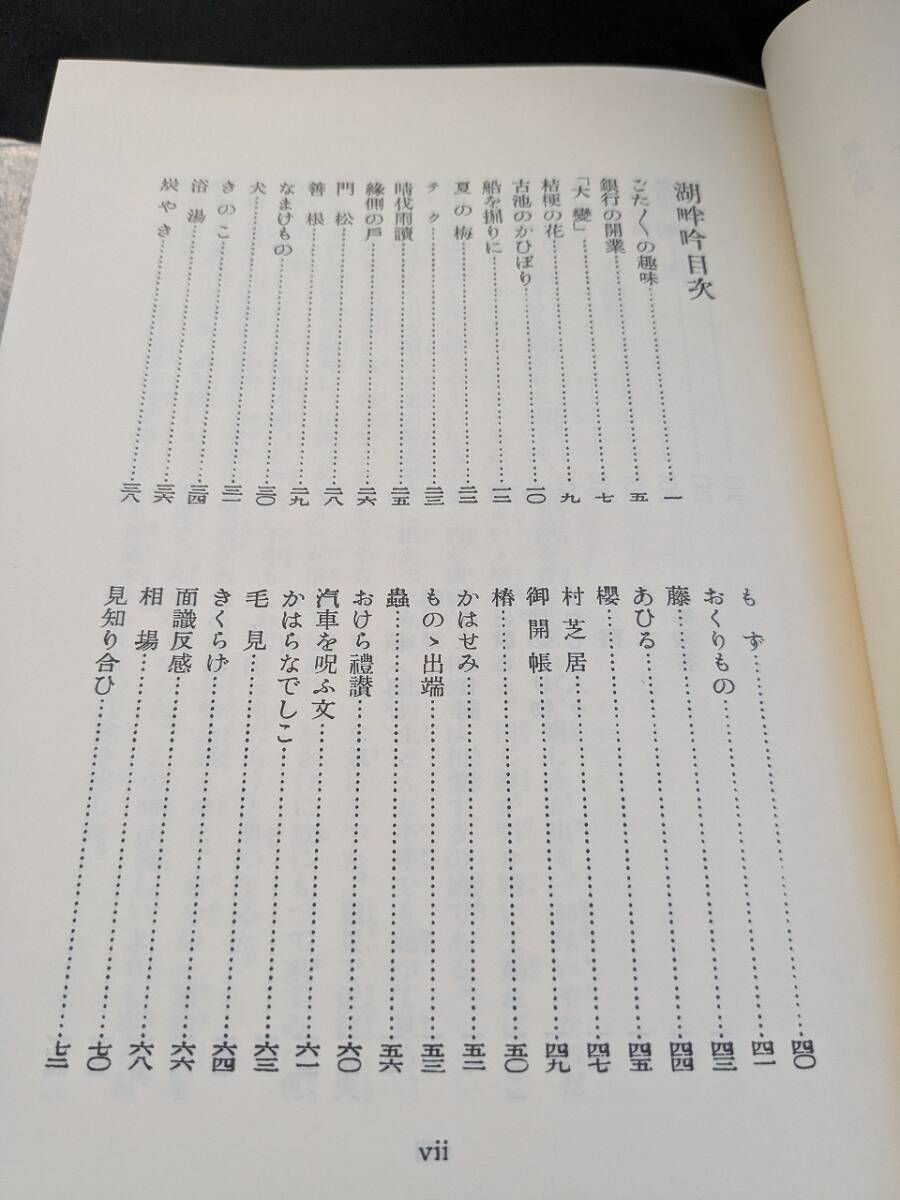 湖畔吟目次
ごた〱の趣味……一
銀行の開業……五
「大變」……七
桔梗の花……九
古池のかひぼり……一〇
船を掘りに……一二
夏の梅……二二
テク……二三
晴伐雨讀……二五
緣側の戶……二六
門松……二八
善根……二九
なまけもの……三〇
犬……三一
きのこ……三四
浴湯……三六
炭やき……三八
もず……四〇
おくりもの……四一
藤……四三
あひる……四四
櫻……四五
村芝居……四七
御開帳……四九
椿……五〇
かはせみ……五二
ものゝ出端……五三
蟲……五六
おけら禮讃……六〇
汽車を呪ふ文……六一
かはらなでしこ……六三
毛見……六四
きくらげ……六六
面識反感……六八
相場……七〇
見知り合ひ……七二
vii